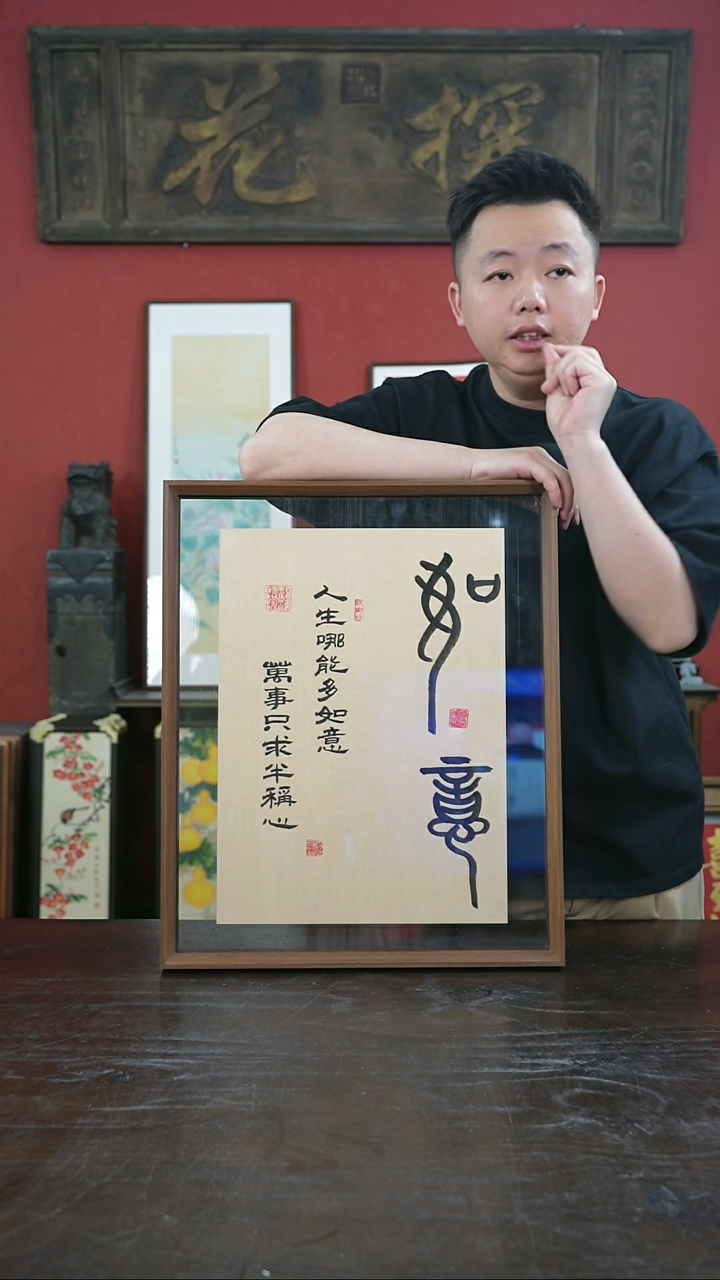 撰花
如意
人生哪能多如意
萬事只求半稱心